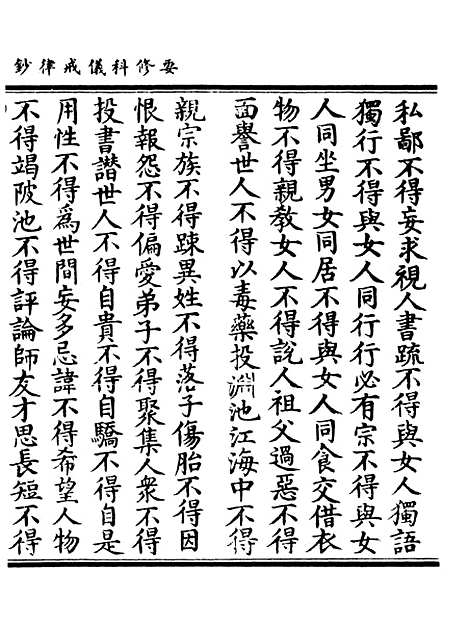 要修科儀戒律鈔
私鄙不得妄求視人書疏不得與女人獨語
獨行不得與女人同行行必有宗不得與女
人同坐男女同居不得與女人同食交借衣
物不得親教女人不得說人祖父過惡不得
面譽世人不得以毒藥投淵池江海中不得
親宗族不得踈異姓不得落子傷胎不得因
恨報怨不得偏愛弟子不得聚集人衆不得
投書譖世人不得自貴不得自驕不得自是
用性不得爲世間妄多忌諱不得希望人物
不得竭陂池不得評論師友才思長短不得